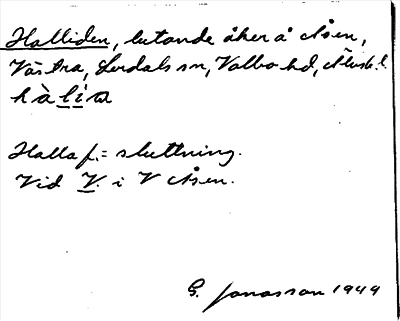 Halliden, lutande åker å Åsen,
Västra, Lerdals sn, Valbo hd, Älvsb. l.
hàlia
Halla f. = sluttning.
Vid V. i V Åsen.
G. Jonasson 1949